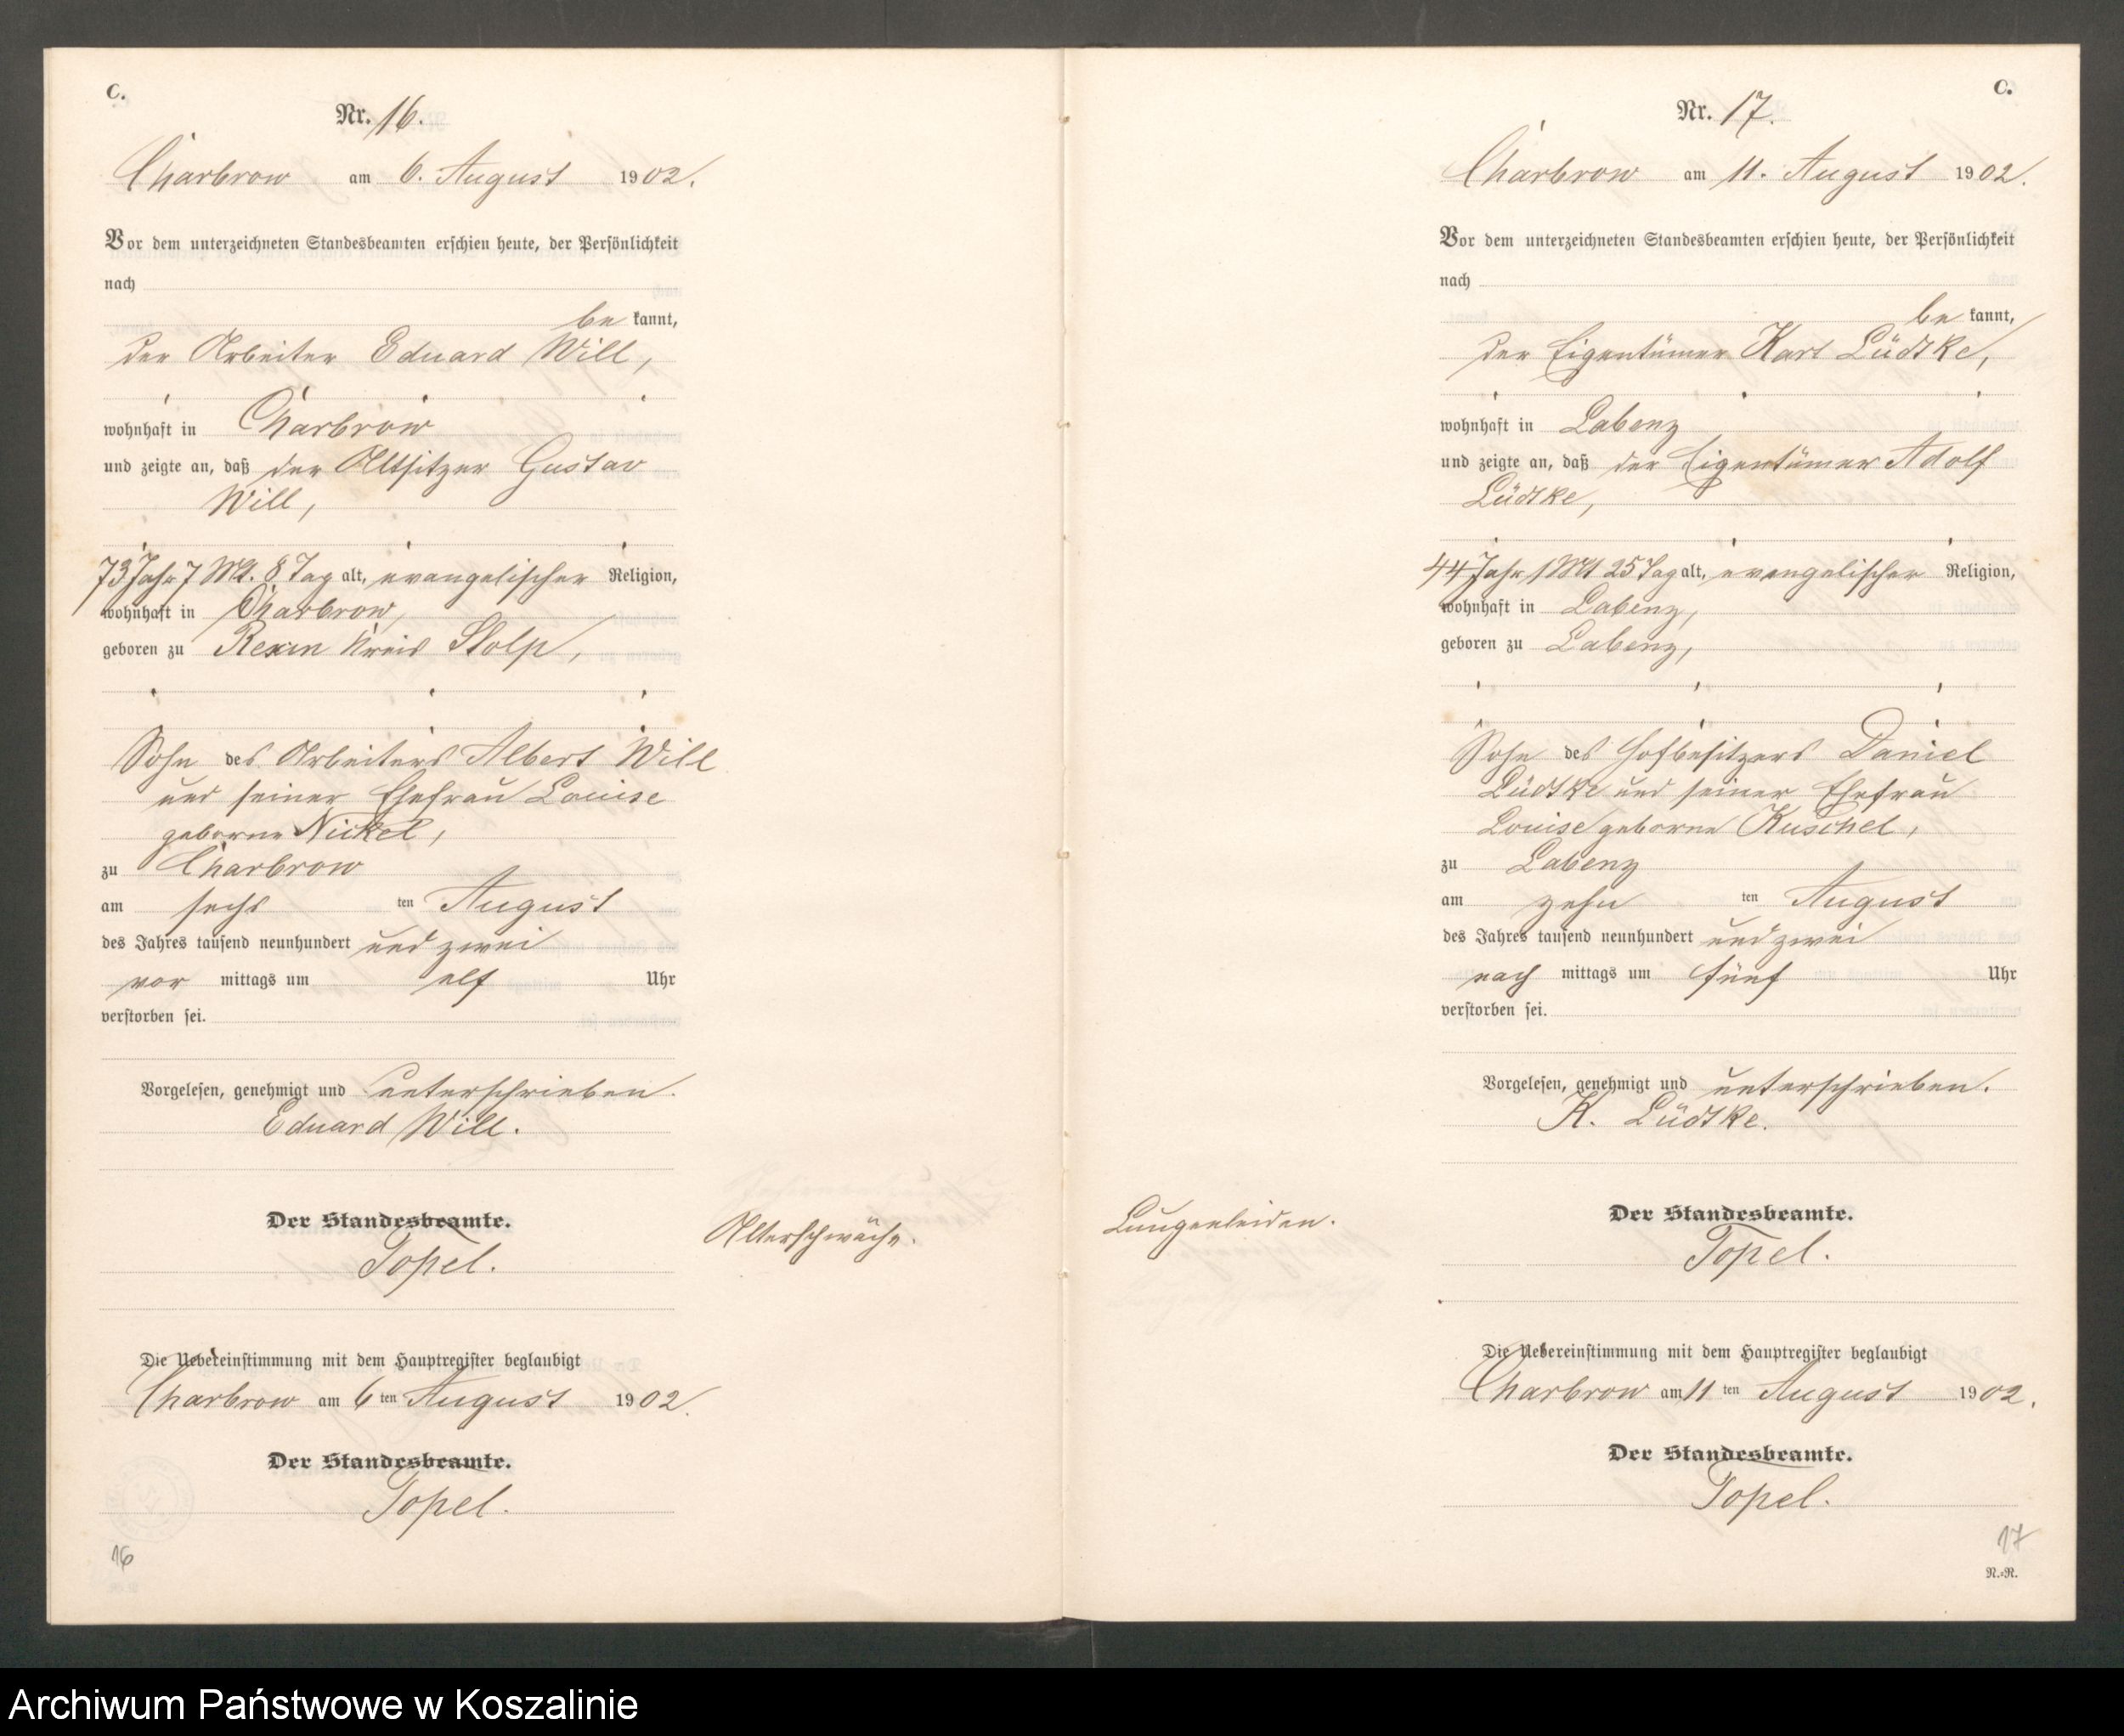 C.
Nr. 16.
Charbrow am 6. August 1902.
Vor dem unterzeichneten Standesbeamten erschien heute, der Persönlichkeit
nach
be kannt,
der Arbeiter Eduard Will,
wohnhaft in Charbrow
und zeigte an, daß der Altsitzer Gustav
Will,
73 Jahr 7 Mt. 8 Tag alt, evangelischer Religion,
wohnhaft in Charbrow,
geboren zu Rexin Kreis Stolp,
Sohn des Arbeiters Albert Will
und seiner Ehefrau Louise
geborne Nickel,
zu Charbrow
am sechs ten August
des Jahres tausend neunhundert und zwei
vor mittags um elf Uhr
verstorben sei.
Vorgelesen, genehmigt und unterschrieben.
Eduard Will.
Der Standesbeamte.
Topel.
Altersschwäche.
Die Uebereinstimmung mit dem Hauptregister beglaubigt
Charbrow am 6 ten August 1902.
Der Standesbeamte.
Topel.
16
C.
Nr. 17.
Charbrow am 11. August 1902.
Vor dem unterzeichneten Standesbeamten erschien heute, der Persönlichkeit
nach
be kannt,
der Eigentümer Karl Lüdtke,
wohnhaft in Labenz
und zeigte an, daß der Eigentümer Adolf
Lüdtke,
44 Jahr 1 Mt 25 Tag alt, evangelischer Religion,
wohnhaft in Labenz,
geboren zu Labenz,
Sohn des Hofbesitzers Daniel
Lüdtke und seiner Ehefrau
Louise geborne Kuschel,
zu Labenz
am zehn ten August
des Jahres tausend neunhundert und zwei
nach mittags um fünf Uhr
verstorben sei.
Vorgelesen, genehmigt und unterschrieben.
K. Lüdtke.
Der Standesbeamte.
Topel.
Lungenleiden.
Die Uebereinstimmung mit dem Hauptregister beglaubigt
Charbrow am 11 ten August 1902.
Der Standesbeamte.
Topel.
17
N.-R.
Archiwum Państwowe w Koszalinie